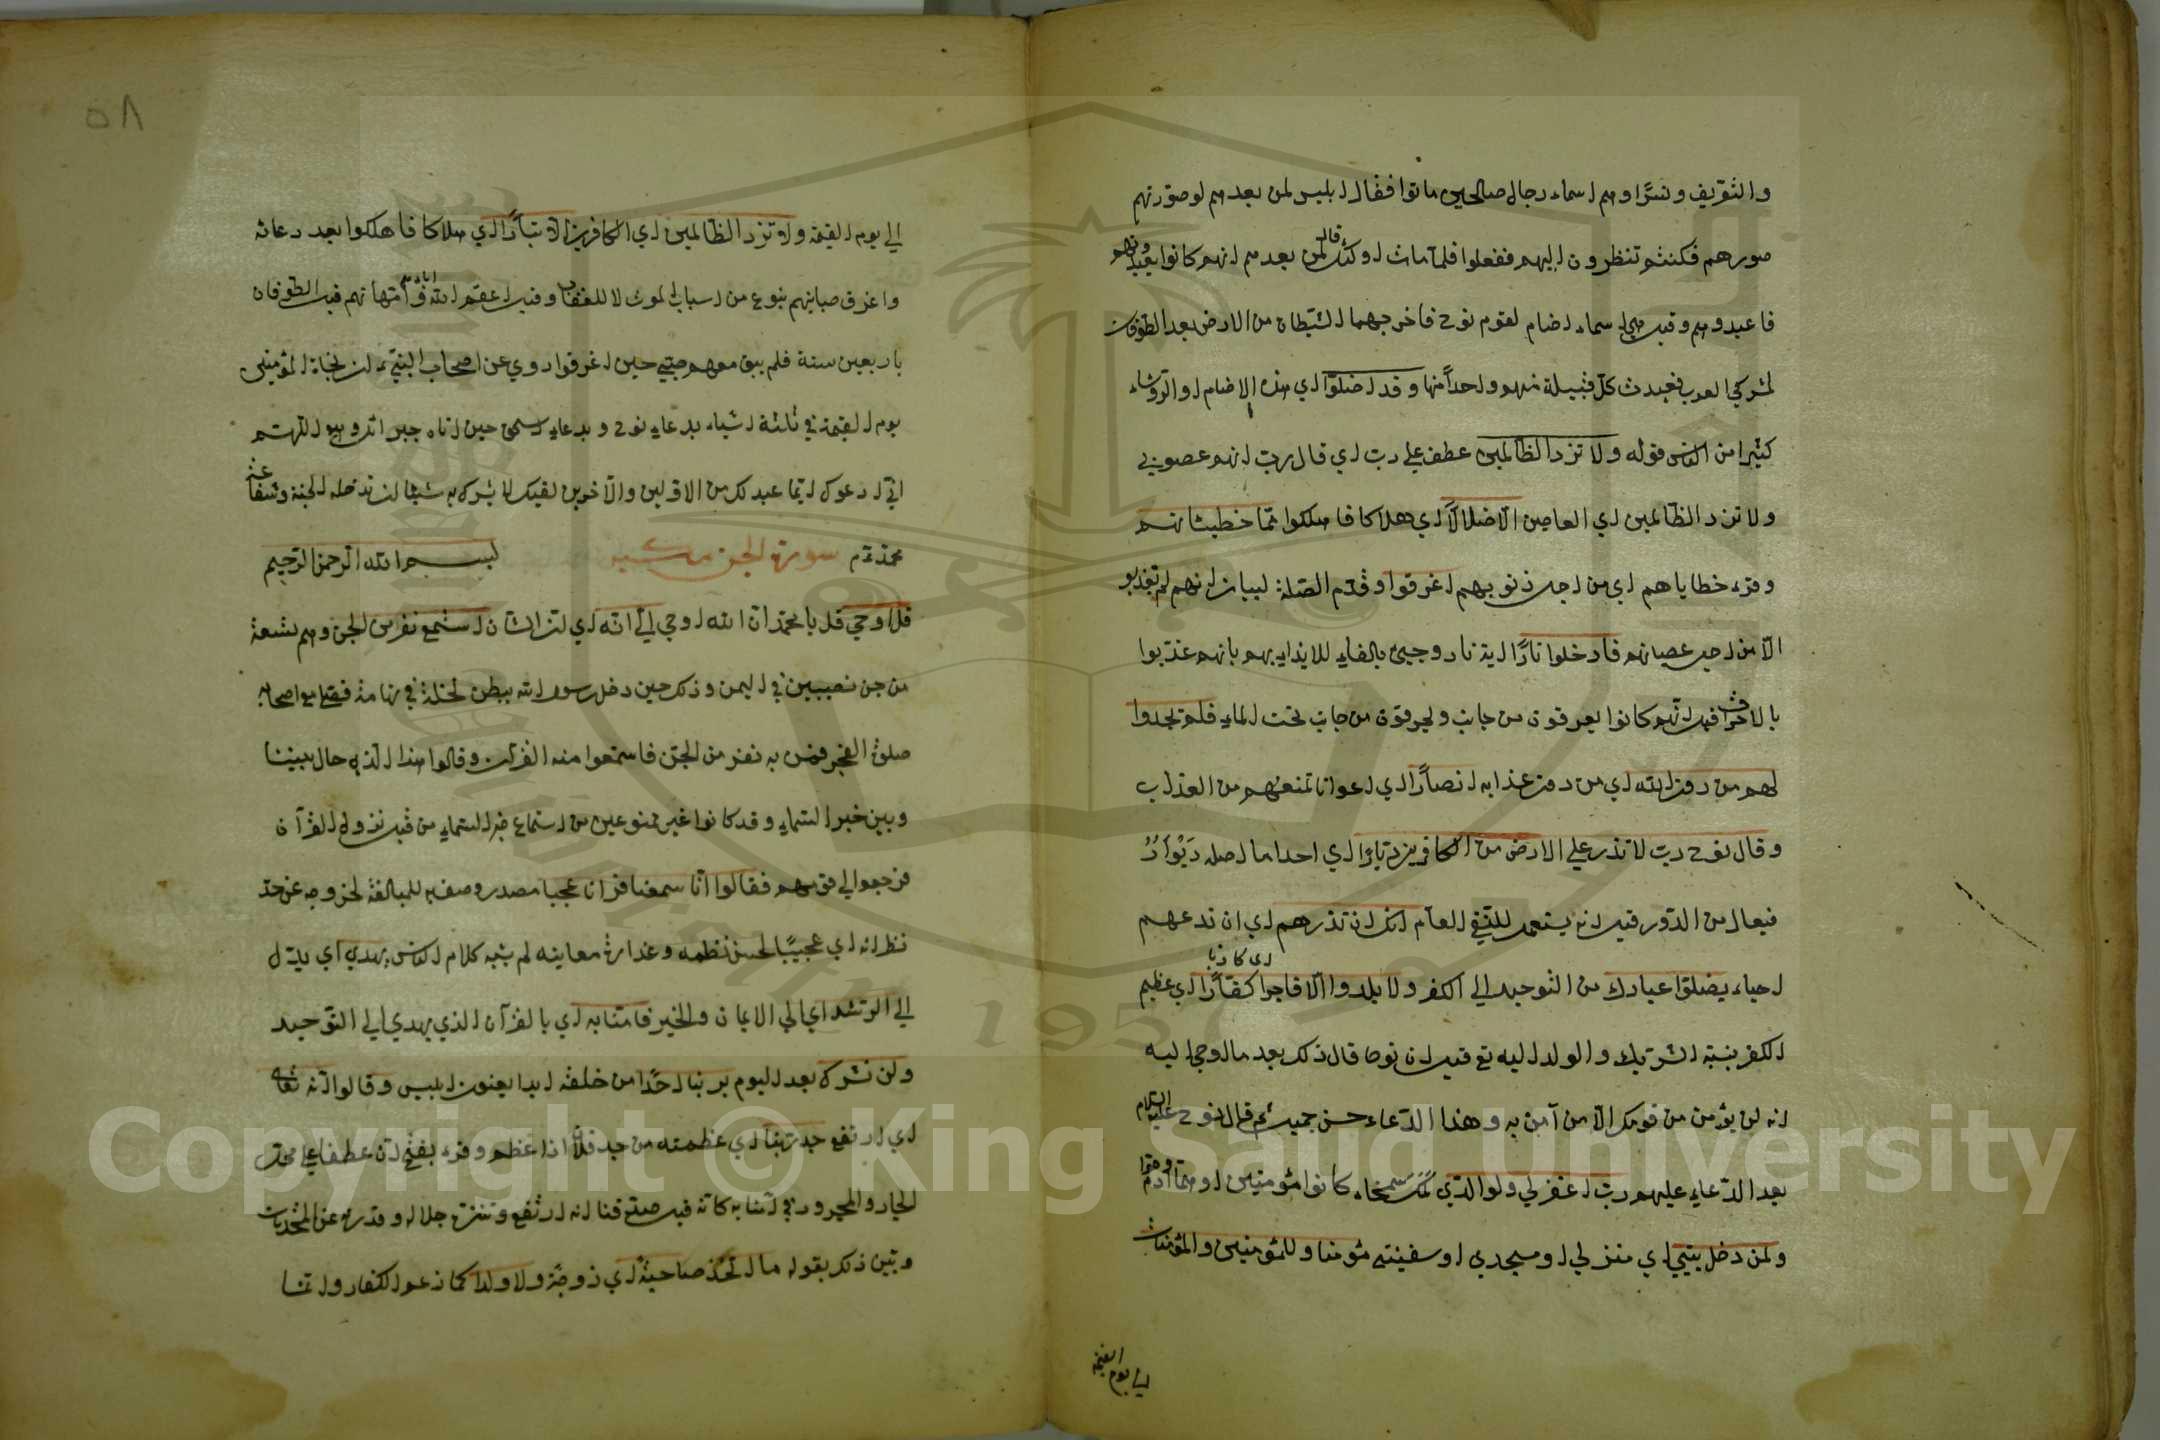 والتعريف ونسرا وهم اسماء رجال صالحين ماتوا فقال ابليس لمن بعدهم لو صورتهم
صورهم فكنتم تنظرون اليهم ففعلوا فلما مات اولئك قال لمن بعدهم انهم كانوا يعبدونهم
فاعبدوهم وقيل هي اسماء اصنام لقوم نوح فاخرجها الشيطان من الارض بعد الطوفان
لمشركي العرب فعبدت كل قبيلة منهم واحدا منها وقد اضلوا اي هذه الاصنام او الرؤساء
كثيرا من الناس قوله ولا تزد الظالمين عطف علي رب اي قال رب انهم عصوني
ولا تزد الظالمين اي العاصين الا ضلالا اي هلاكا فاهلكوا مما خطيئاتهم
وقرء خطاياهم اي من اجل ذنوبهم اغرقوا وقدم الصلة لبيان انهم لم يعذبوا
الا من اجل عصيانهم فادخلوا نارا اية نار وجيئ بالفاء للايذان بهم بانهم عذبوا
بالاحراق قيل انهم كانوا يغرقون من جانب ويحرقون من جانب تحت الماء فلم يجدوا
لهم من دون الله اي من دون عذابه انصارا اي اعوانا تمنعهم من العذاب
وقال نوح رب لا تذر علي الارض من الكافرين ديارا اي احدا ما اصله ديوار
فيعال من الدور قيل انه يستعمل للنفي العام انك ان تذرهم اي ان تدعهم
احياء يضلوا عبادك من التوحيد الي الكفر ولا يلدوا الا فاجرا اي كاذبا كفارا اي عظيم
الكفر بنسبة الشريك والولد اليه تع قيل ان نوحا قال ذلك بعد ما اوحي اليه
انه لن يؤمن من قومك الا من آمن به وهذا الدعاء حسن جميـ ثم قال نوح عليه السلام
بعد الدعاء عليهم رب اغفر لي ولوالدي لمك سمخاء كانوا مؤمنين او هما آدم وحوا
ولمن دخل بيتي اي منزلي او مسجدي او سفينتي مؤمنا وللمؤمنين والمؤمنات
الي يوم القيمة
٥٨
الي يوم القيمة ولا تزد الظالمين اي الكافرين الا تبارا اي هلاكا فاهلكوا بعد دعائه
واغرق صبيانهم بنوع من اسباب الموت لا للعقاب وقيل اعقم الله امهاتهم قبل الطوفان
باربعين سنة فلم يبق معهم صبي حين اغرقوا روي عن اصحاب النبي ان نجاة المؤمنين
يوم القيمة في ثلثة اشياء بدعاء نوح وبدعاء اسحق حين اتاه جبرائل وهو اللهم
اني ادعوك ايما عبد لك من الاولين والآخرين لقيك لا يشرك به شيئا ان تدخله الجنة وشفاعة
محمد عم سورة الجن مكية بسم الله الرحمن الرحيم
قل اوحي قل يا محمد ان الله اوحي الي انه اي ان الشان استمع نفر من الجن وهم تسعة
من جن نصيبين في اليمن وذلك حين دخل رسول الله ببطن نخلة في تهامة فصلي مع اصحابه
صلوة الفجر فمر به نفر من الجن فاستمعوا منه القرآن وقالوا هذا الذي حال بيننا
وبين خبر السماء وقد كانوا غير ممنوعين من استماع خبر السماء من قبل نزول القرآن
فرجعوا الي قومهم فقالوا انا سمعنا قرانا عجبا مصدر وصف به للمبالغة لخروجه عن حد
نظرائه اي عجيبا لحسن نظمه وغزارة معانيه لم يشبه كلام الناس يهدي اي يدل
الي الرشد اي الي الايمان والخير فامنا به اي بالقرآن الذي يهدي الي التوحيد
ولن نشرك بعد اليوم بربنا احدا من خلقه ابدا يعنون ابليس وقالوا انه تعالي
اي ارتفع جد ربنا اي عظمته من جد فلان اذا عظم وقرء بفتح ان عطفا علي محل
الجار والمجرور في آمنا به كانه قيل صدقنا انه ارتفع وتنزه جلاله وقدره عن المحدثات
وبين ذلك بقوله ما اتخذ صاحبة اي زوجة ولا ولدا كما زعم الكفار وانما
Copyright © King Saud University
1957